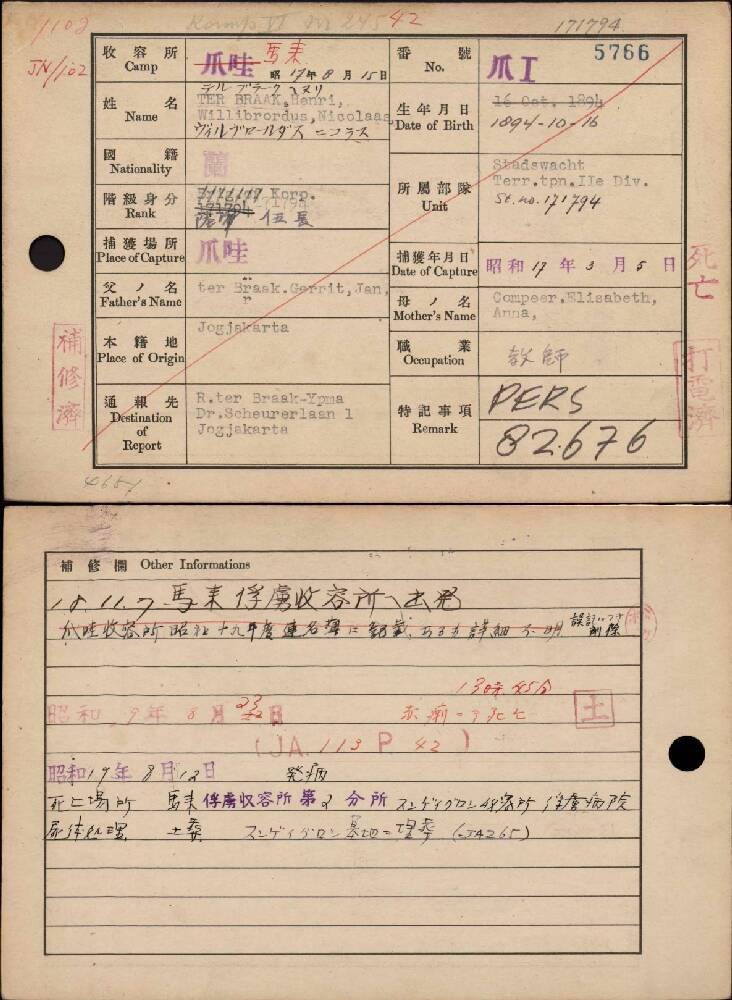 1102
171794
JN/102
収容所
Camp
爪哇 馬来
昭 17年 8月 15日
番號
No.
爪I
5766
姓名
Name
テルブラーク ヘヌリ
TER BRAAK, Henri,
Willibrordus, Nicolaas
ヴィルブロールダス ニコラス
生年月日
Date of Birth
16 Oct. 1894
1894-10-16
國籍
Nationality
蘭
階級身分
Rank
Korp.
171794
伍長
所屬部隊
Unit
Stadswacht
Terr.tpn.IIe Div.
St. no. 171794
捕獲場所
Place of Capture
爪哇
捕獲年月日
Date of Capture
昭和 17 年 3 月 5 日
死亡
父ノ名
Father's Name
ter Braak.Gerrit,Jan,
母ノ名
Mother's Name
Compeer,Elisabeth,
Anna,
本籍地
Place of Origin
Jogjakarta
職業
Occupation
教師
補修濟
打電濟
通報先
Destination
of
Report
R.ter Braak-Ypma
Dr.Scheurerlaan 1
Jogjakarta
特記事項
Remark
PERS
82.676
補修欄 Other Informations
18.11.7 馬来俘虜収容所ヘ出発
爪哇收容所昭和十九年度連名簿に記載、あるも詳細不明 誤記ニツキ削除
13時45分
昭和 19年 8月 23日
赤痢ニテ死亡
土
(JA. 113 P. 42)
昭和19年 8月12日 発病
死亡場所 馬来俘虜収容所第2分所 俘虜病院
屍体処理 土葬 スンゲイグロン墓地ニ埋葬 (J4265)